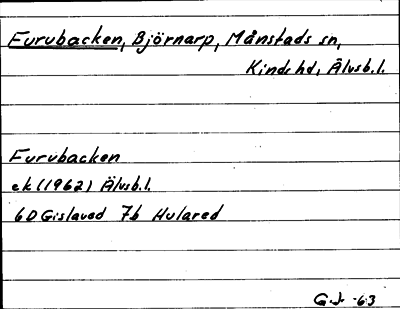 Furubacken, Björnarp, Månstads sn,
Kinds hd, Älvsb.l.
Furubacken
ek (1962) Älvsb.l.
6D Gislaved 7b Hulared
G.J. -63